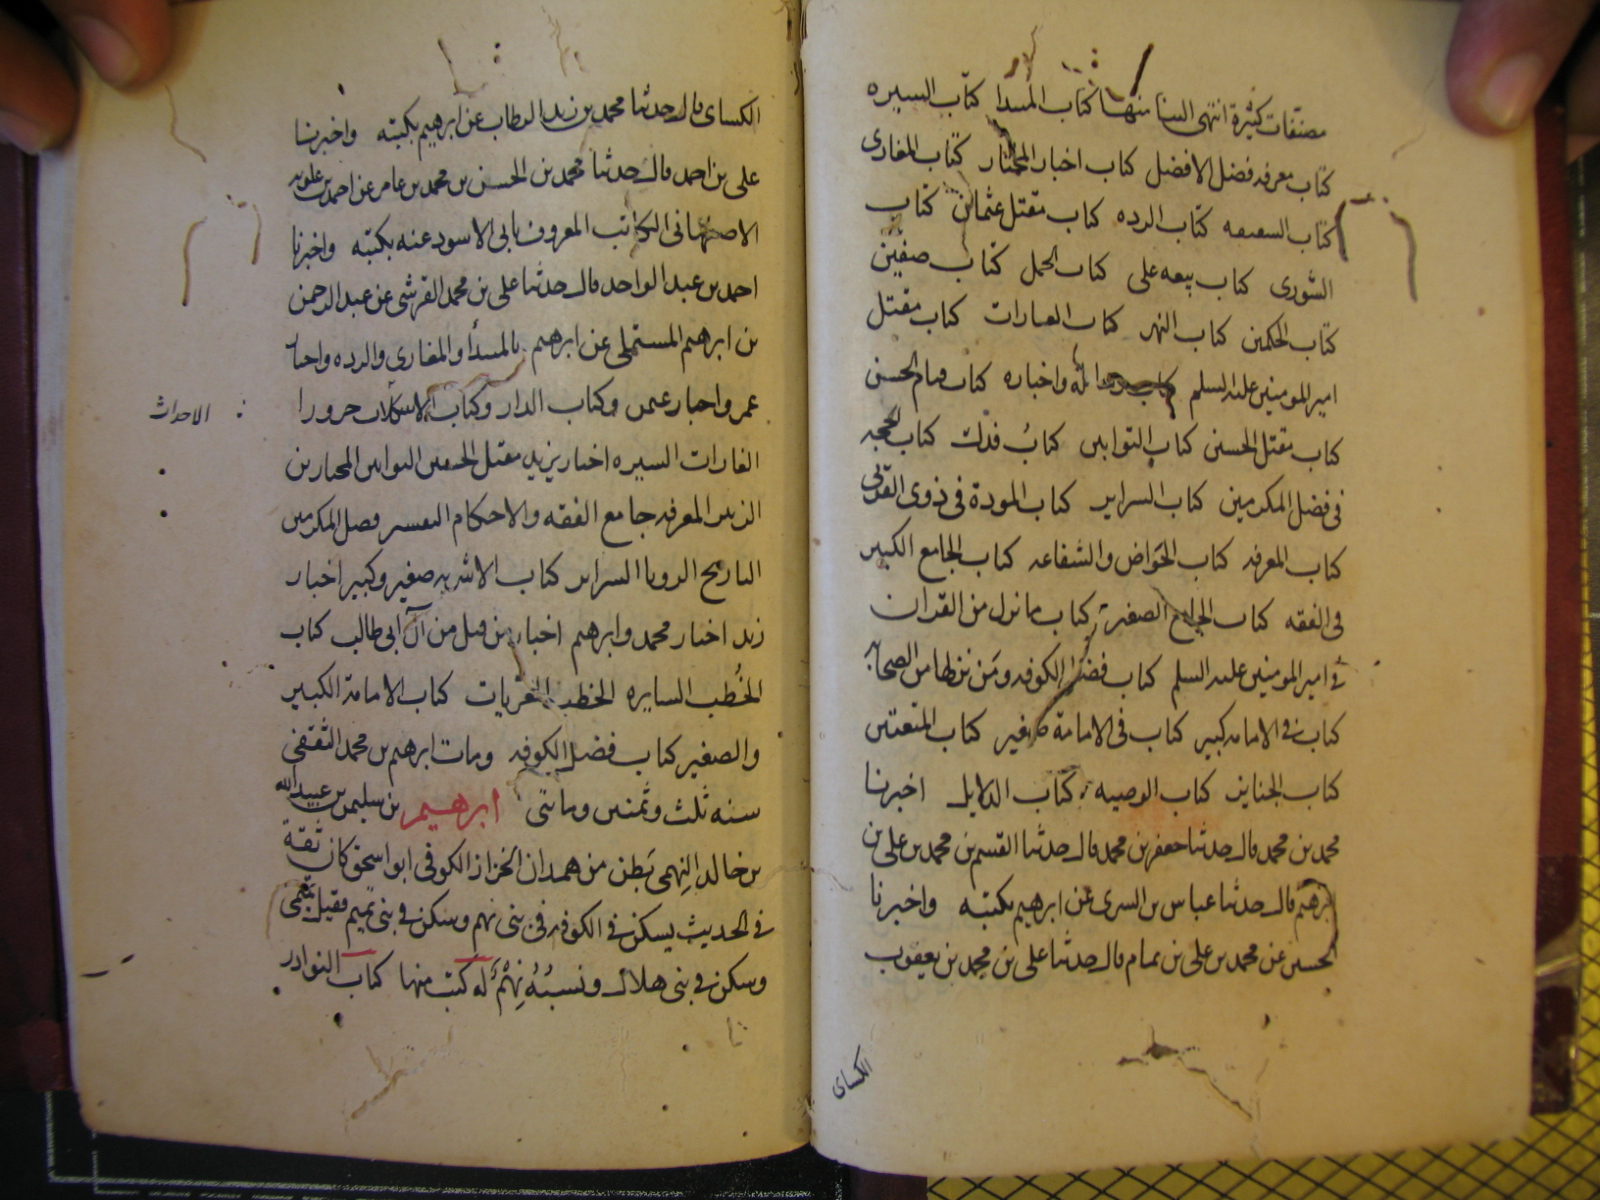 مصنفات كثيرة انتهى الينا منها كتاب المبتدا كتاب السيره
كتاب معرفه فضل الافضل كتاب اخبار المختار كتاب المغازى
كتاب السقيفه كتاب الرده كتاب مقتل عثمان كتاب
الشورى كتاب بيعه على كتاب الجمل كتاب صفين
كتاب الحكمين كتاب النهر كتاب الغارات كتاب مقتل
امير المومنين عليه السلم واخباره كتاب قيام الحسن
كتاب مقتل الحسين كتاب التوابين كتاب فدك كتاب الحجه
فى فضل المكرمين كتاب السراير كتاب المودة فى ذوى القربى
كتاب المعرفه كتاب الحوض والشفاعه كتاب الجامع الكبير
فى الفقه كتاب الجامع الصغير كتاب ما نزل من القران
فى امير المومنين عليه السلم كتاب فضل الكوفه ومن نزلها من الصحابه
كتاب فى الامامه كبير كتاب فى الامامة صغير كتاب المتعتين
كتاب الجنايز كتاب الوصيه كتاب الدلايل اخبرنا
محمد بن محمد قال حدثنا جعفر بن محمد قال حدثنا القسم بن محمد بن على بن
ابرهيم قال حدثنا عباس بن السرى عن ابرهيم بكتبه واخبرنا
الحسين عن محمد بن على بن تمام قال حدثنا على بن محمد بن يعقوب
الكساى
الكساى قال حدثنا محمد بن زيد الرطاب عن ابرهيم بكتبه واخبرنا
على بن احمد قال حدثنا محمد بن الحسن بن محمد بن عامر عن احمد بن علويه
الاصفهانى الكاتب المعروف بابى الاسود عنه بكتبه واخبرنا
احمد بن عبد الواحد قال حدثنا على بن محمد القرشى عن عبد الرحمن
بن ابرهيم المستملى عن ابرهيم بالمبتدأ والمغازى والرده واخبار
عمر واخبار عثمن وكتاب الدار وكتاب حرورا
الاحداث
الغارات السيره اخبار يزيد مقتل الحسين التوابين المختار بن
الزبير المعرفه جامع الفقه والاحكام التفسير فضل المكرمين
التاريخ الرويا السراير كتاب الاشربه صغير وكبير اخبار
زيد اخبار محمد وابرهيم اخبار من قتل من آل ابى طالب كتاب
الخُطب السايره الخطب المغريات كتاب الامامة الكبير
والصغير كتاب فضل الكوفه ومات ابرهيم بن محمد الثقفى
سنه ثلث وثمنين وماتتى ابرهيم بن سليمن بن عبيد الله
بن خالد النِهمى بَطن من همدان الخزاز الكوفى ابو اسحق كان ثقة
فى الحديث يسكن فى الكوفه فى بنى نهم وسكن فى بنى تميم فقيل تميمى
وسكن فى بنى هلال ونسبُهُ نِهْمُ له كتب منها كتاب النوادر